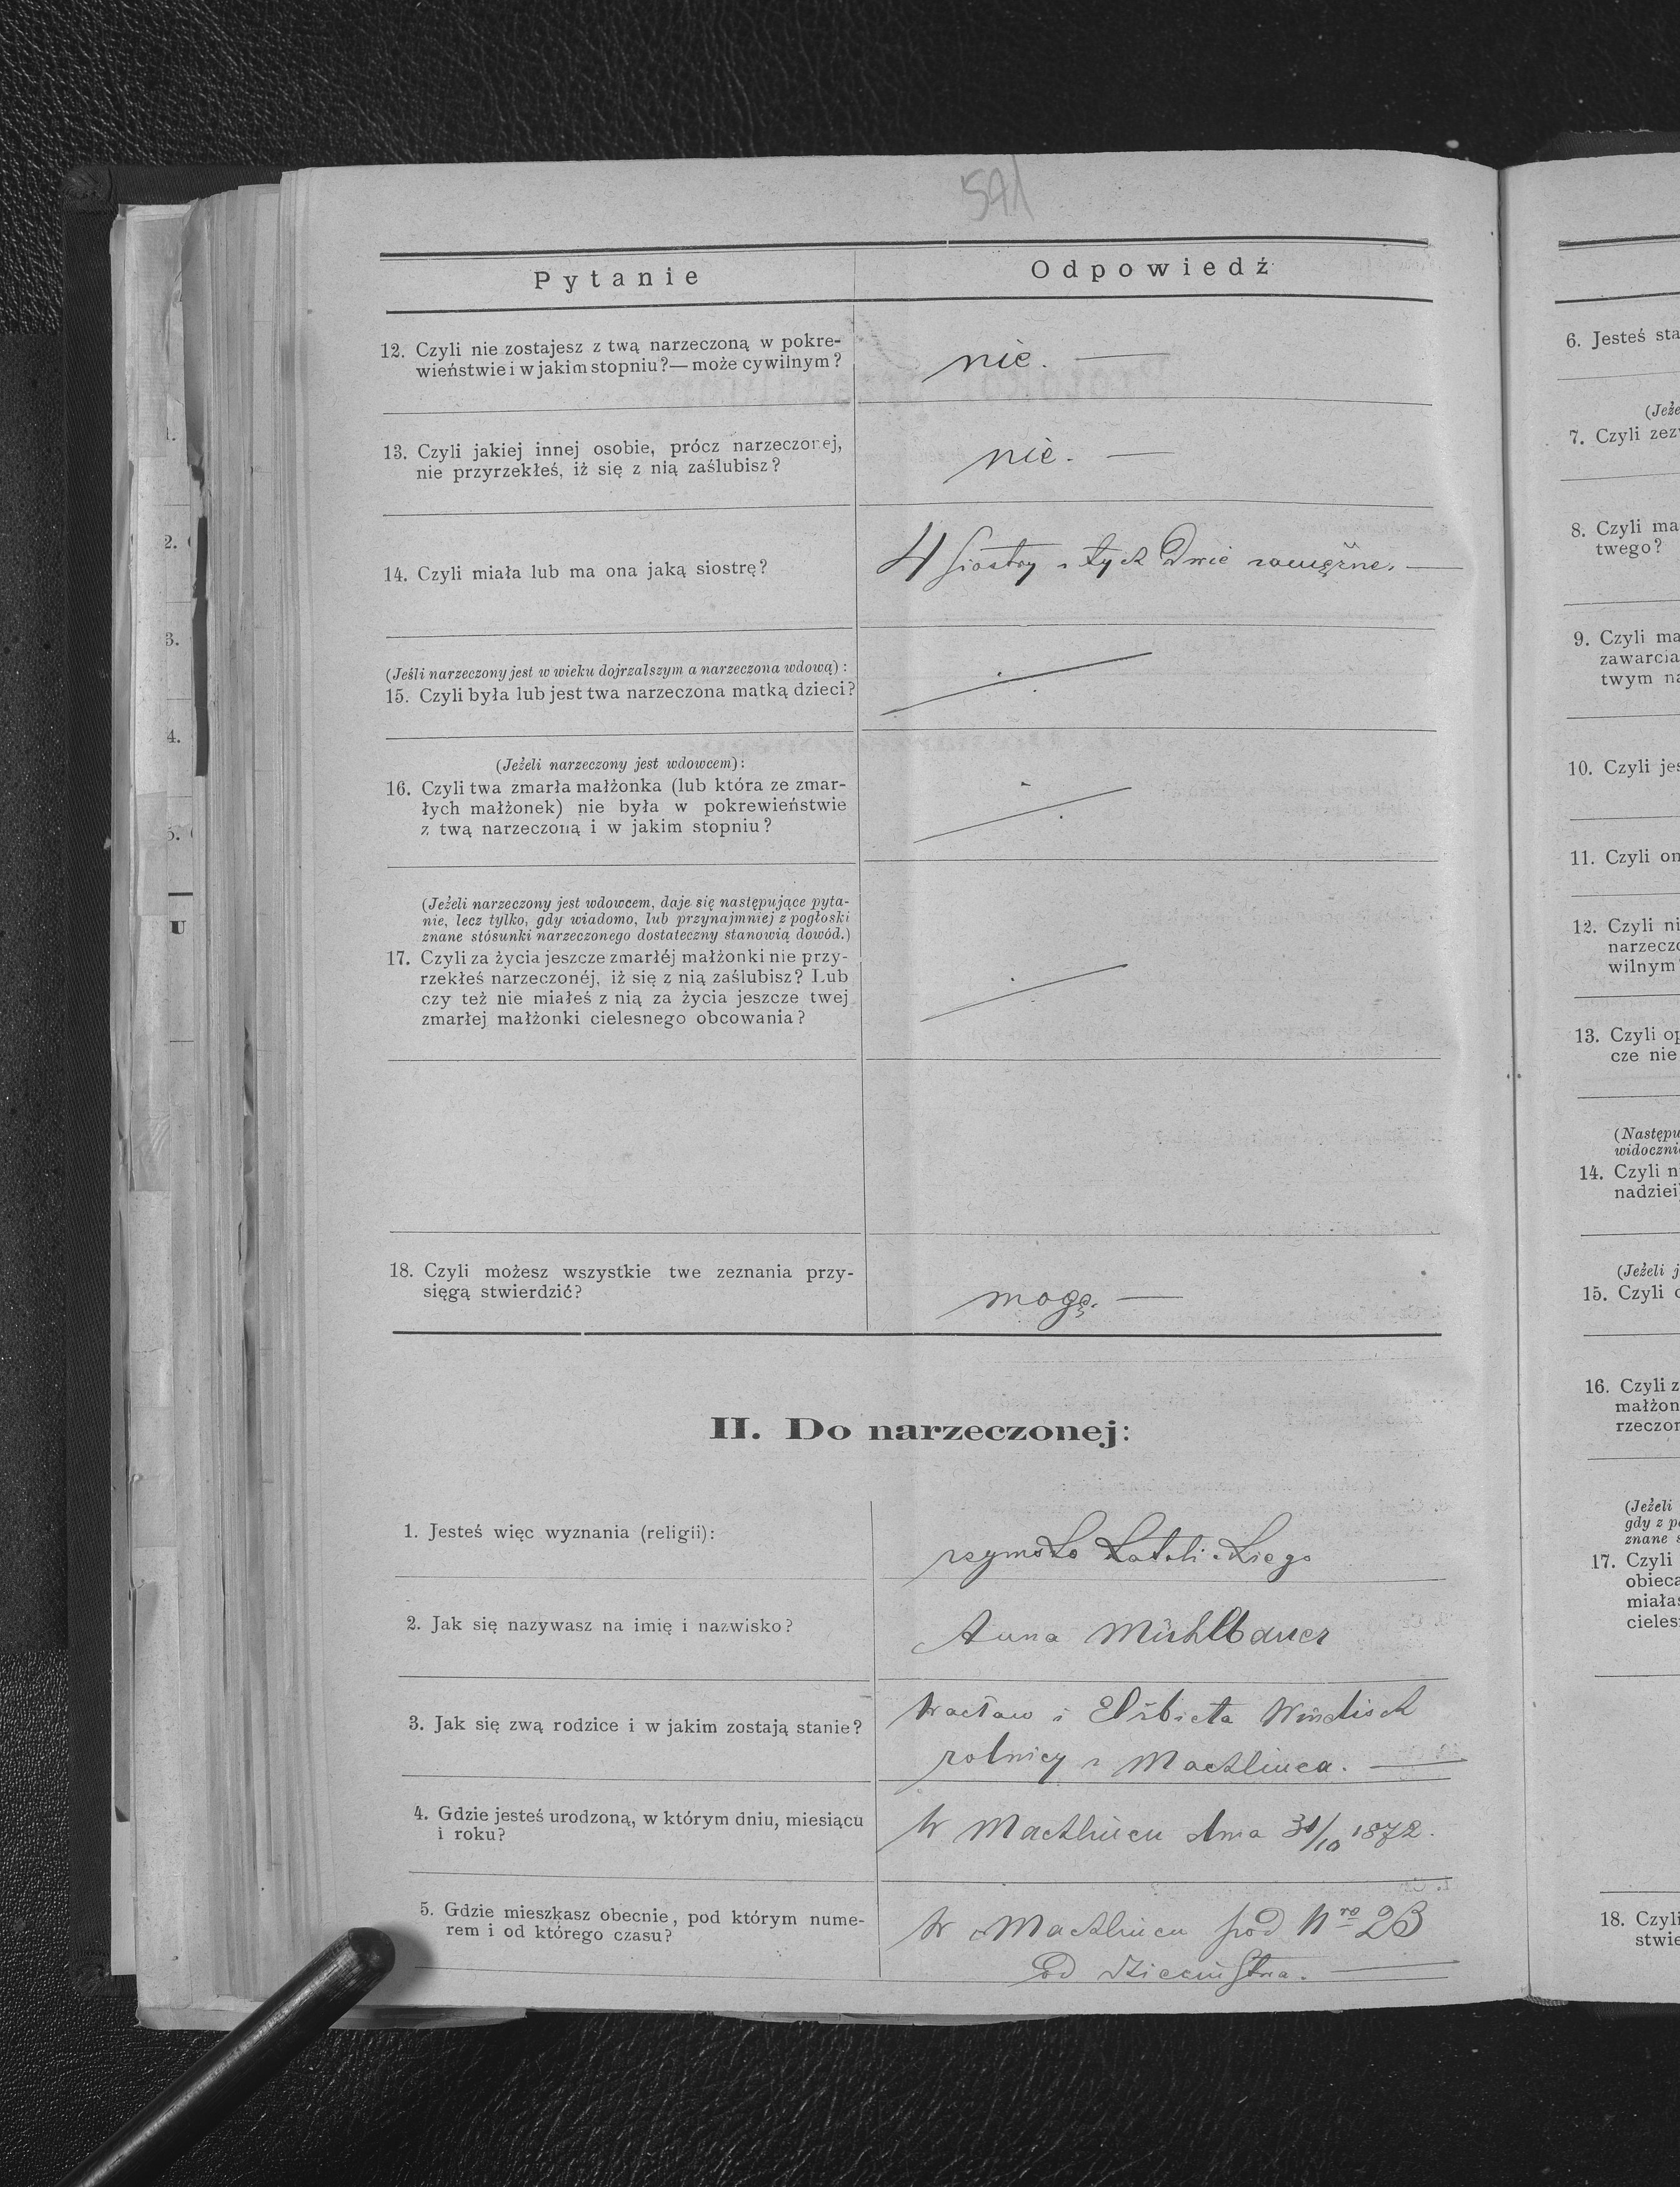 591
Pytanie
Odpowiedź
12. Czyli nie zostajesz z twą narzeczoną w pokre-
wieństwie i w jakim stopniu? — może cywilnym?
nie. —
13. Czyli jakiej innej osobie, prócz narzeczonej,
nie przyrzekłeś, iż się z nią zaślubisz?
nie. —
14. Czyli miała lub ma ona jaką siostrę?
4 siostry z tych dwie zamężne. —
(Jeśli narzeczony jest w wieku dojrzalszym a narzeczona wdową):
15. Czyli była lub jest twa narzeczona matką dzieci?
(Jeżeli narzeczony jest wdowcem):
16. Czyli twa zmarła małżonka (lub która ze zmar-
łych małżonek) nie była w pokrewieństwie
z twą narzeczoną i w jakim stopniu?
(Jeżeli narzeczony jest wdowcem, daje się następujące pyta-
nie, lecz tylko, gdy wiadomo, lub przynajmniej z pogłoski
znane stósunki narzeczonego dostateczny stanowią dowód.)
17. Czyli za życia jeszcze zmarłéj małżonki nie przy-
rzekłeś narzeczonéj, iż się z nią zaślubisz? Lub
czy też nie miałeś z nią za życia jeszcze twej
zmarłej małżonki cielesnego obcowania?
18. Czyli możesz wszystkie twe zeznania przy-
sięgą stwierdzić?
mogę. —
II. Do narzeczonej:
1. Jesteś więc wyznania (religii):
rzymsko katolickiego
2. Jak się nazywasz na imię i nazwisko?
Anna Mühlbauer
3. Jak się zwą rodzice i w jakim zostają stanie?
Wacław i Elżbieta Windisch
rolnicy z Machlinca. —
4. Gdzie jesteś urodzoną, w którym dniu, miesiącu
i roku?
W Machlincu dnia 31/10 1872.
5. Gdzie mieszkasz obecnie, pod którym nume-
rem i od którego czasu?
W Machlincu pod Nro 23
od dzieciństwa. —
1.
2.
3.
4.
5.
U
6. Jesteś sta
(Jeże
7. Czyli zez
8. Czyli ma
twego?
9. Czyli ma
zawarcia
twym na
10. Czyli jes
11. Czyli on
12. Czyli ni
narzecz
wilnym
13. Czyli op
cze nie
(Następu
widoczni
14. Czyli n
nadziei
(Jeżeli j
15. Czyli
16. Czyli z
małżon
rzeczon
(Jeżeli
gdy z p
znane s
17. Czyli
obieca
miałaś
cieles
18. Czyli
stwie